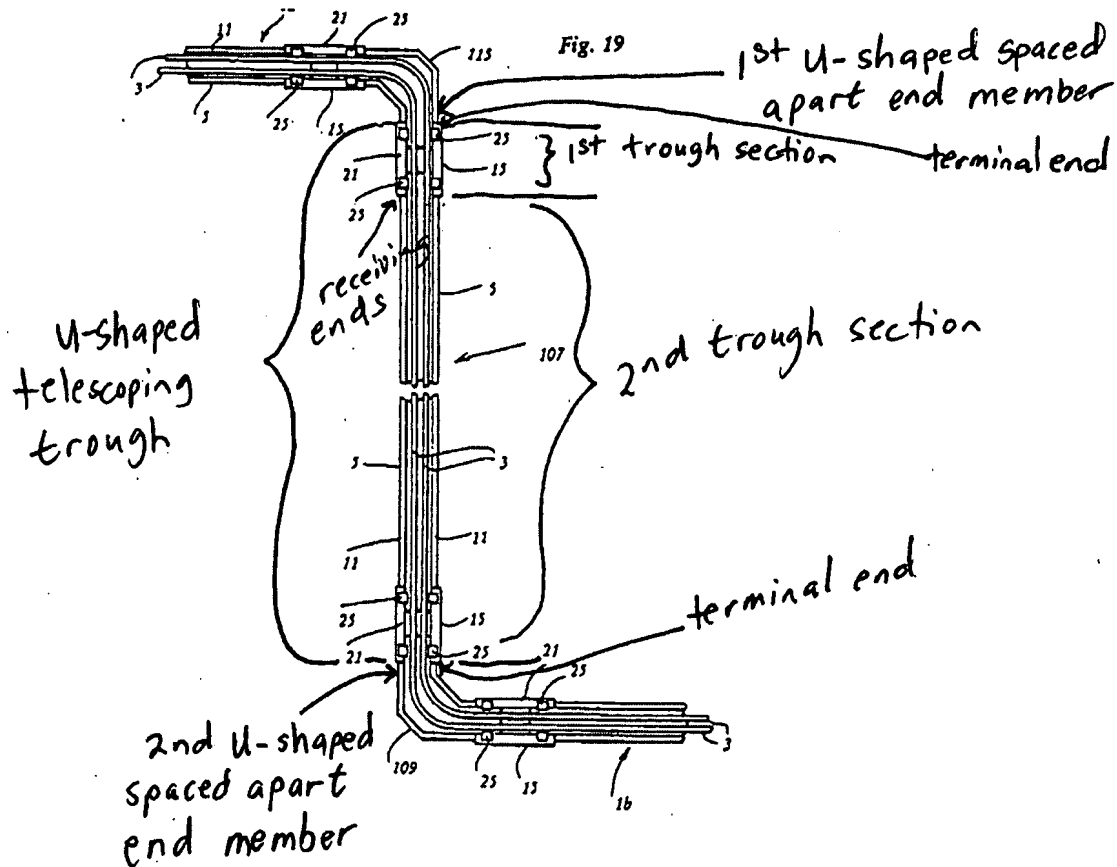 11
21
25
115
Fig. 19
1st U-shaped spaced
apart end member
3
5
25
15
25
1st trough section
terminal end
21
15
25
receivi
ends
5
U-shaped
telescoping
trough
107
2nd trough section
5
3
11
11
25
15
terminal end
21
25
21
25
2nd U-shaped
spaced apart
end member
109
25
15
3
1b